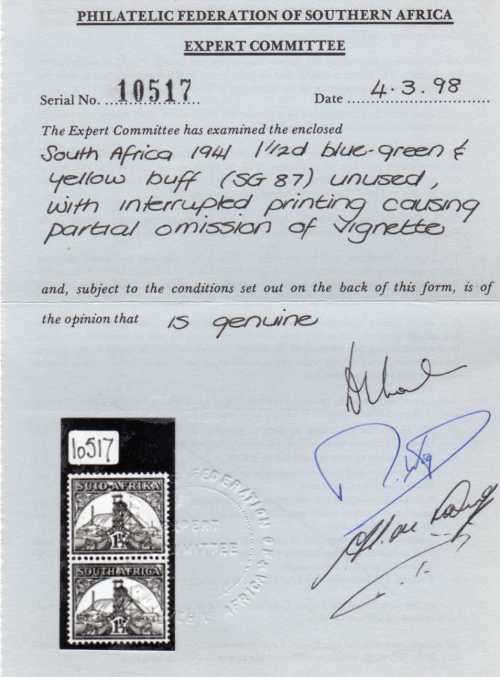 PHILATELIC FEDERATION OF SOUTHERN AFRICA
EXPERT COMMITTEE
Serial No. 10517 Date 4.3.98
The Expert Committee has examined the enclosed
South Africa 1941 1½d blue-green &
yellow buff (SG 87) unused,
with interrupted printing causing
partial omission of vignette
and, subject to the conditions set out on the back of this form, is of
the opinion that is genuine
10517
SUID-AFRIKA
1½D
SOUTH AFRICA
1½D
FEDERATION OF
EXPERT
COMMITTEE
AFRICA